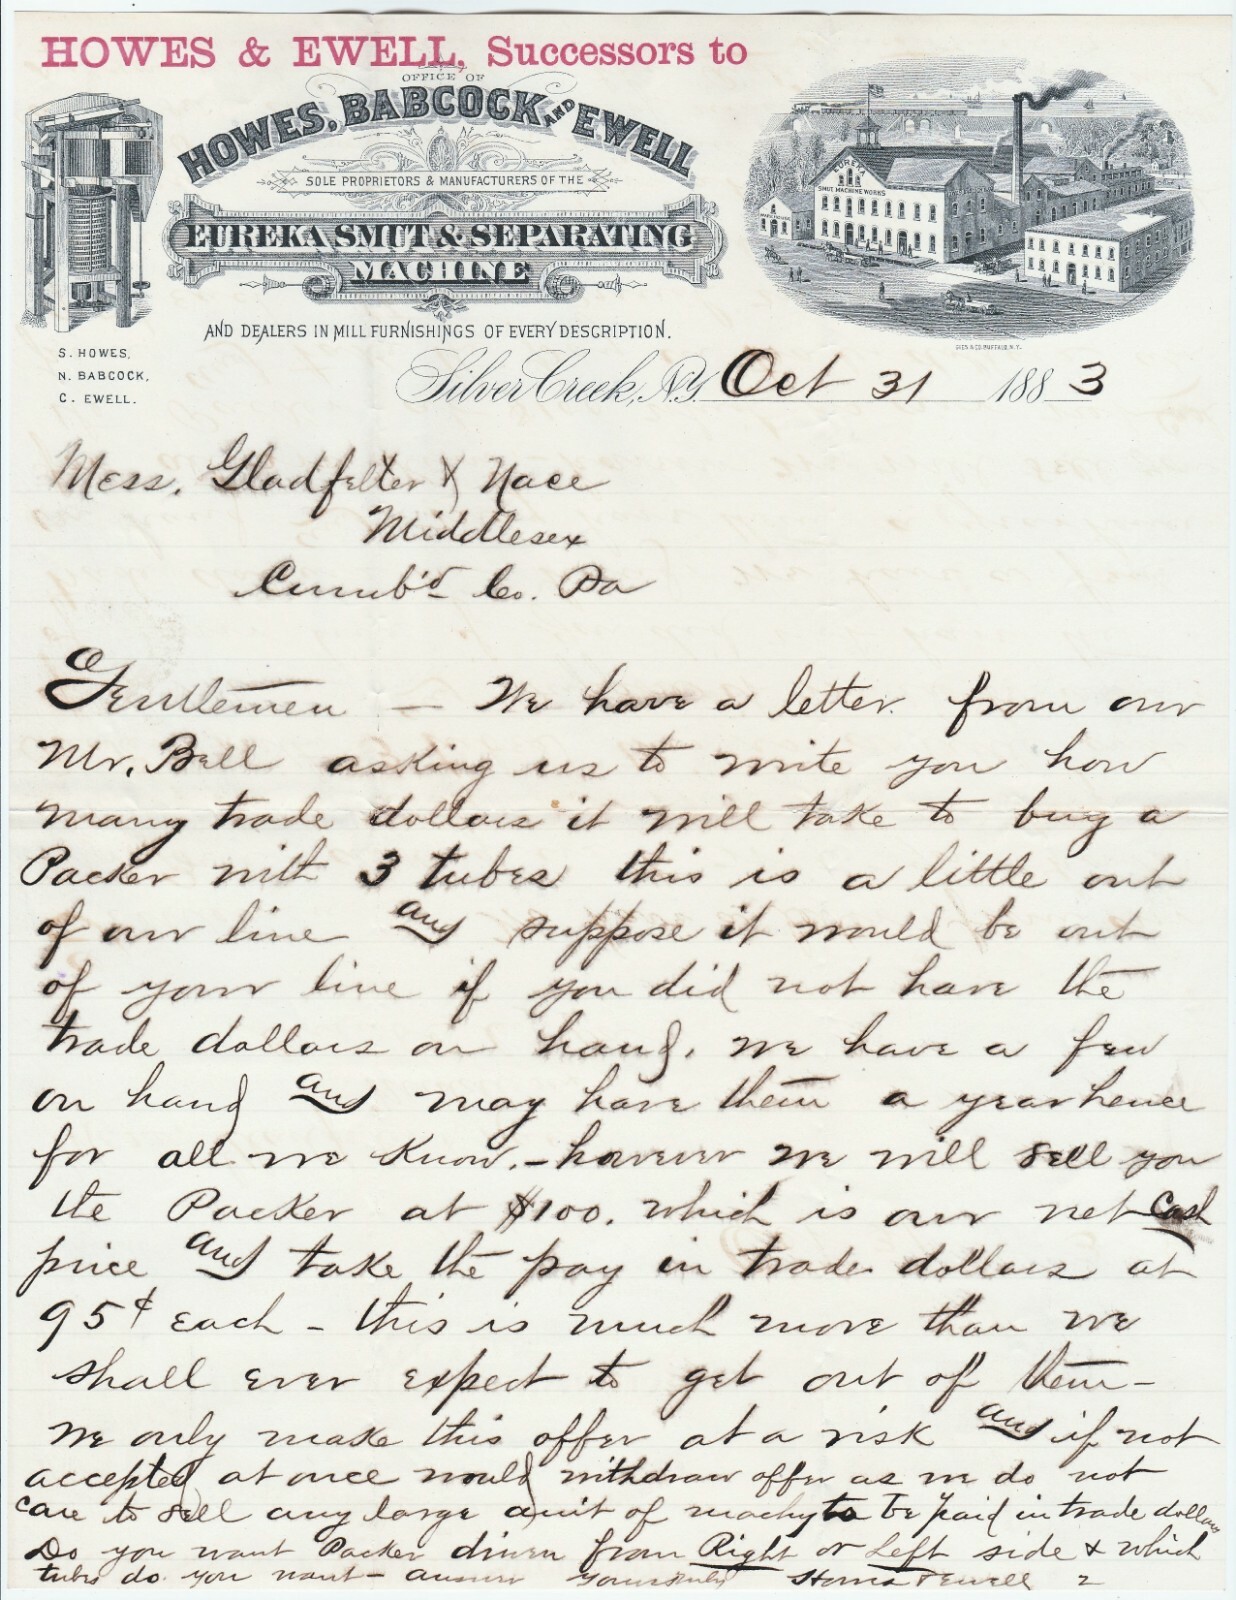 HOWES & EWELL, Successors to
OFFICE OF
HOWES, BABCOCK AND EWELL
SOLE PROPRIETORS & MANUFACTURERS OF THE
EUREKA SMUT & SEPARATING
MACHINE
AND DEALERS IN MILL FURNISHINGS OF EVERY DESCRIPTION.
EUREKA
SMUT MACHINE WORKS
S. HOWES,
N. BABCOCK,
C. EWELL.
Silver Creek, N.Y. Oct 31 1883
Mess. Gladfelter & Nace
Middlesex
Cumb'd Co. Pa
Gentlemen — We have a letter from our
Mr. Bell asking us to write you how
many trade dollars it will take to buy a
Packer with 3 tubes this is a little out
of our line and suppose it would be out
of your line if you did not have the
trade dollars on hand. we have a few
on hand and may have them a year hence
for all we know. - however we will sell you
the Packer at $100. which is our net cash
price and take the pay in trade dollars at
95¢ each - this is much more than we
shall ever expect to get out of them -
we only make this offer at a risk and if not
accepted at once would withdraw offer as we do not
care to sell any large amt of machy to be paid in trade dollars
Do you want Packer driven from Right or Left side & which
tubes do you want - answer Yours truly Howes & Ewell 2